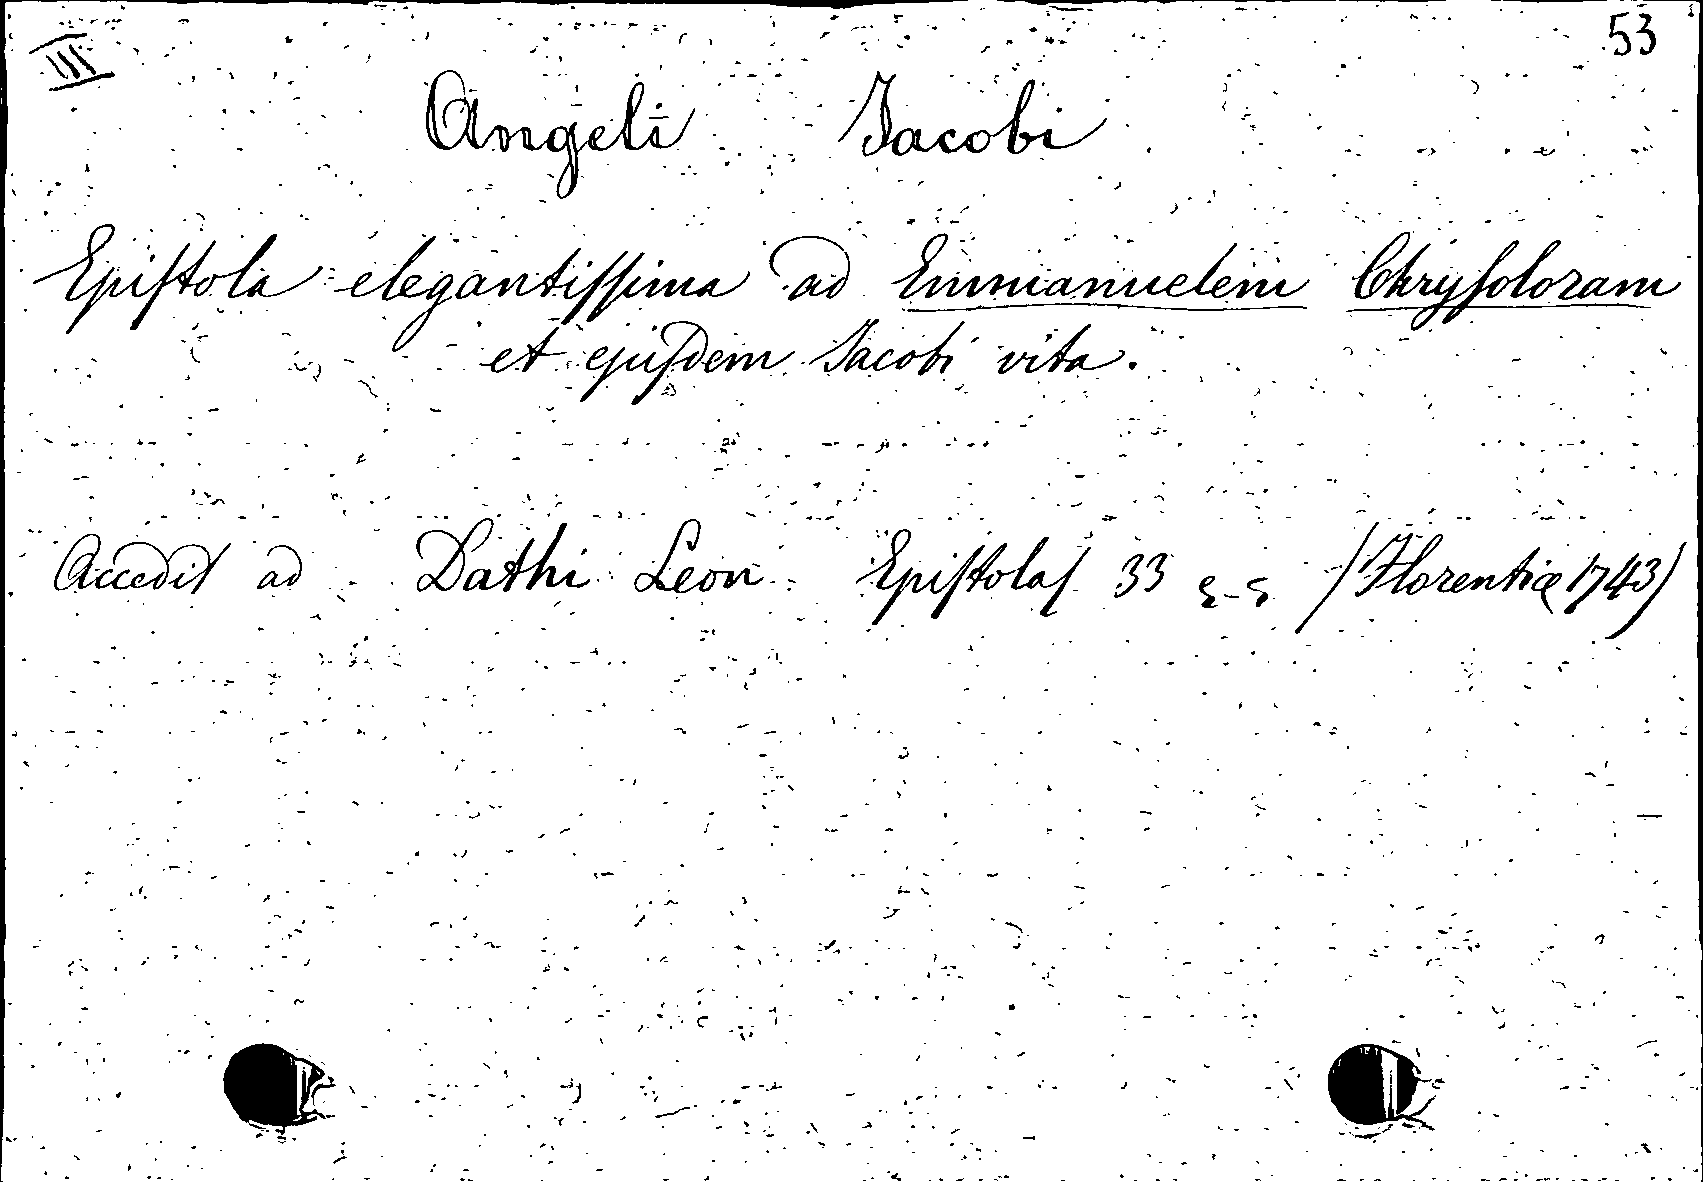 III 53
Angeli Jacobi
Epiſtola elegantiſſima ad Emmanuelem Chryſoloram
et ejuſdem Jacobi vita.
Accedit ad Dathi Leon Epiſtolaſ 33 (Florentiæ 1743)